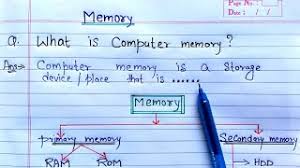 Page No.
Date : / /
Memory
Q. What is Computer memory?
Ans→ Computer memory is a storage
device / place that is ......
Memory
primary memory Secondary memory
RAM ROM HDD